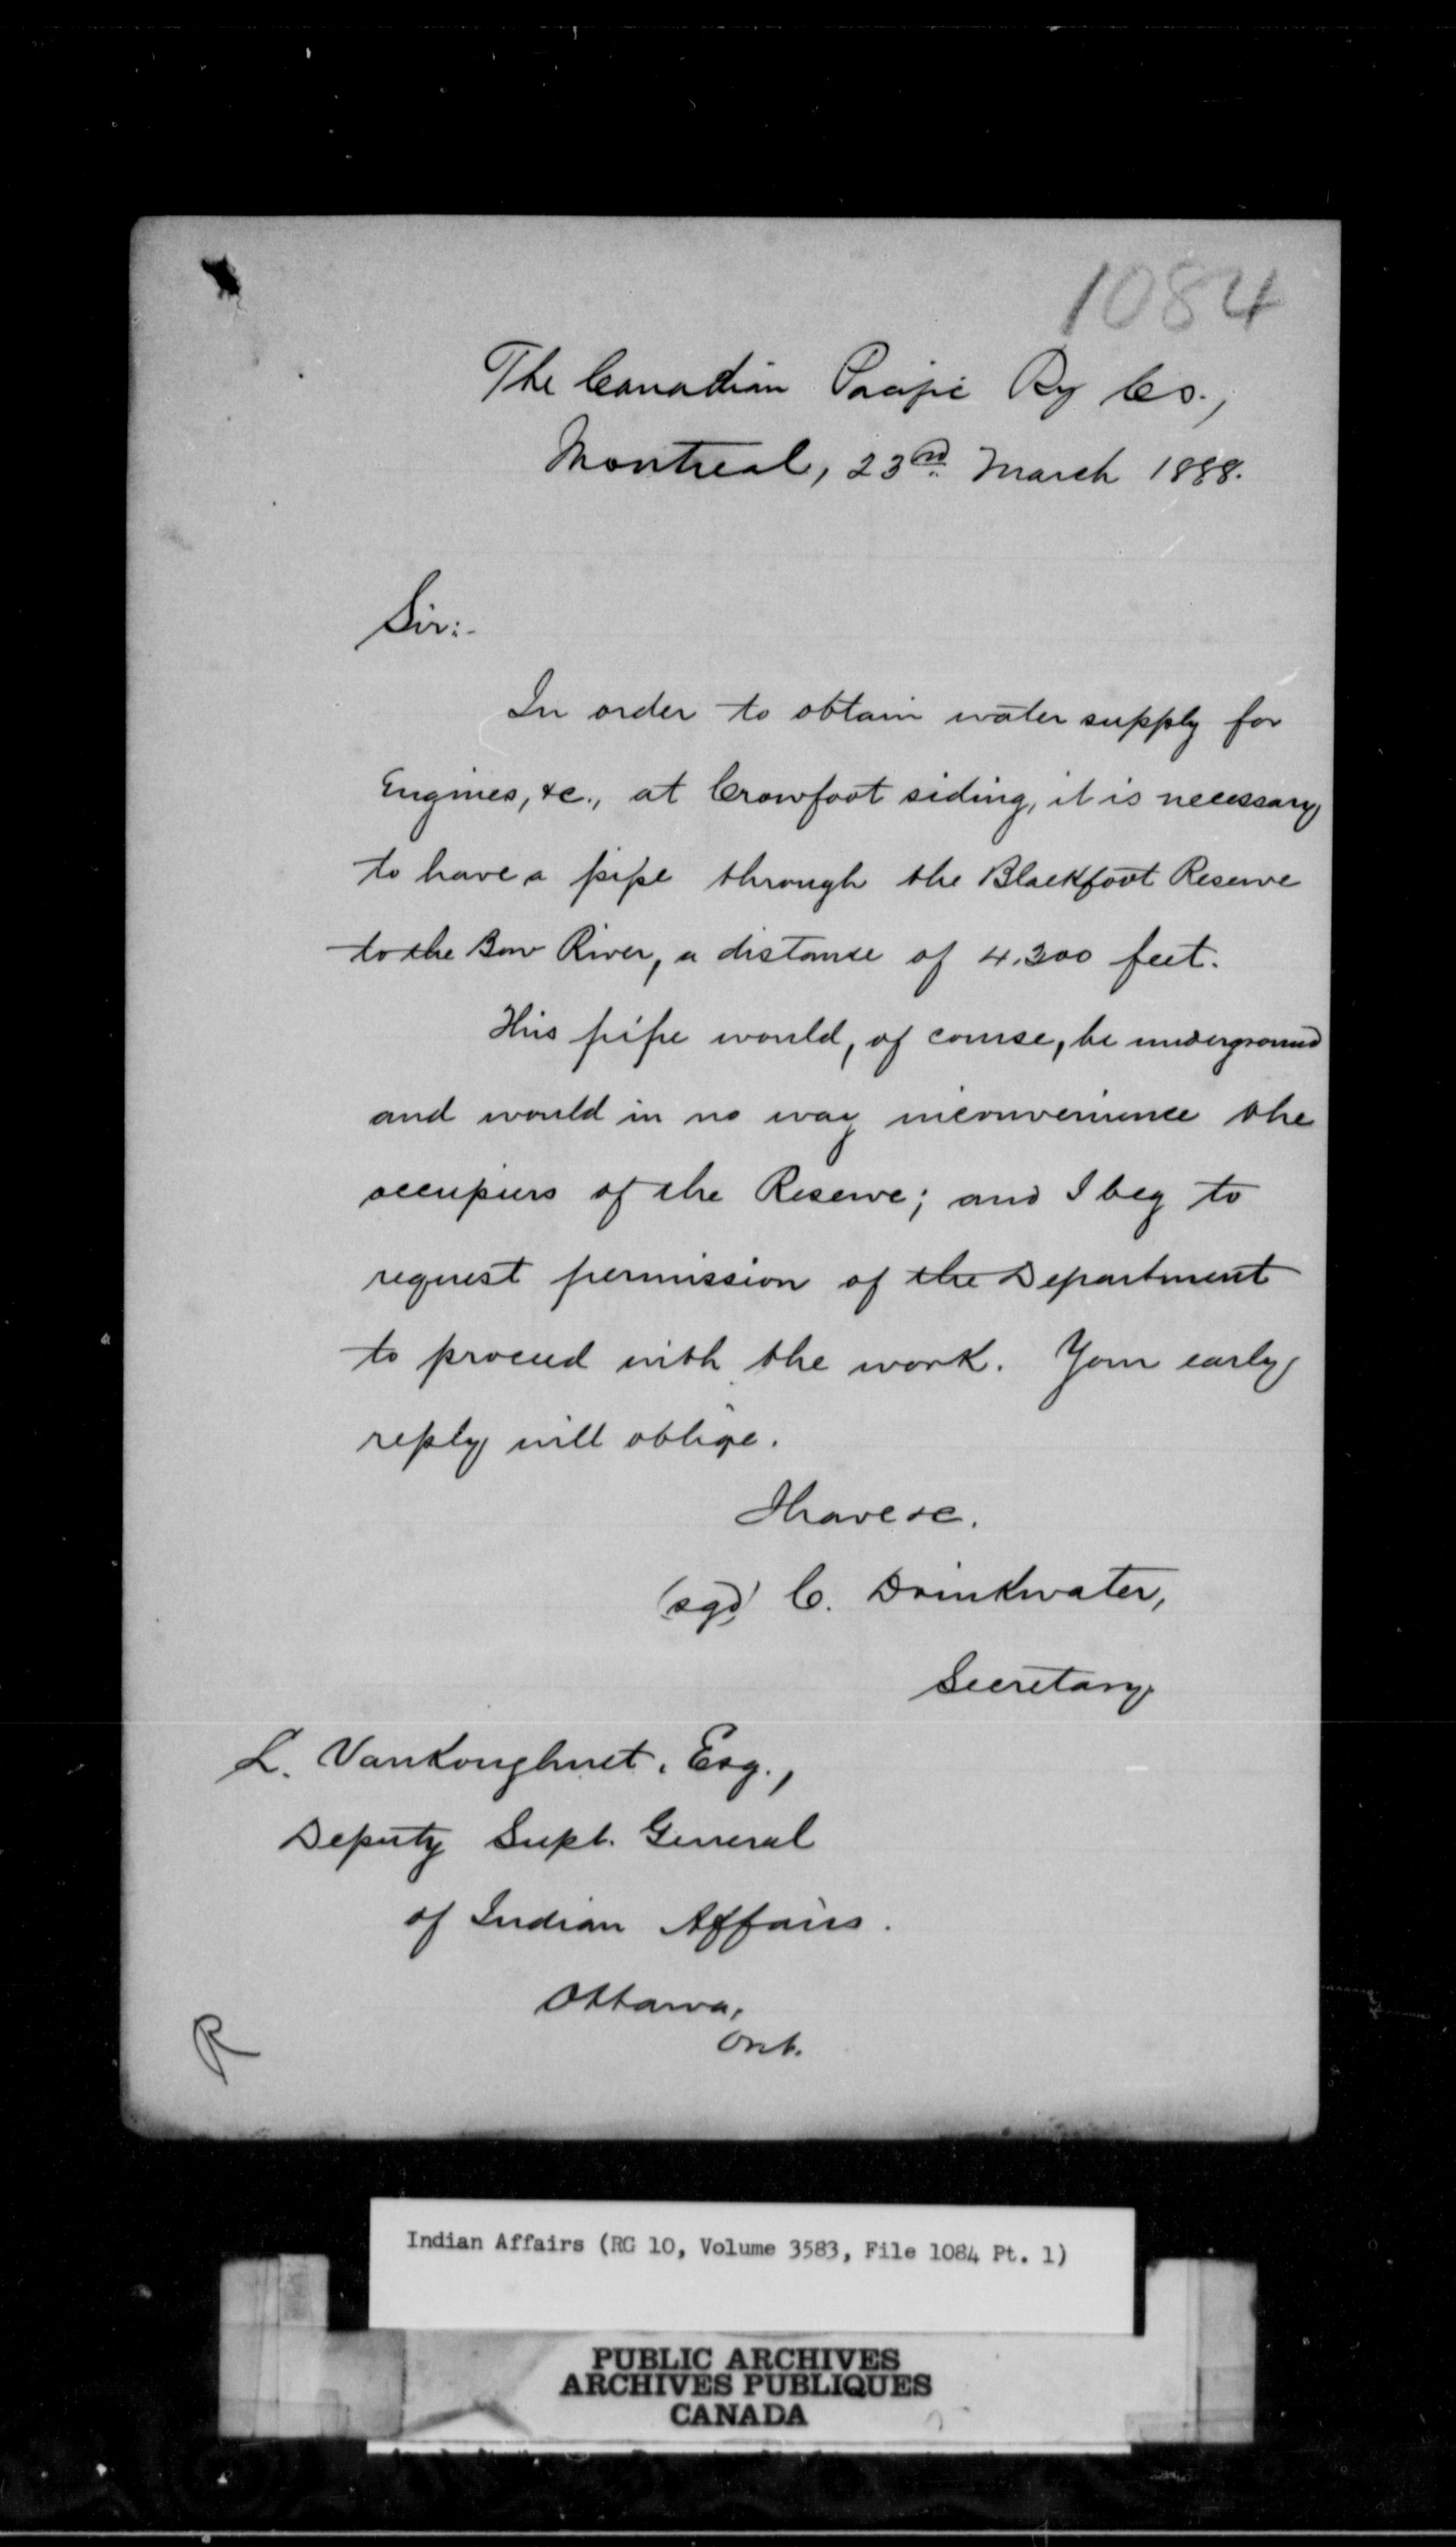 1084
The Canadian Pacific Ry Co.,
Montreal, 23rd. March 1888.
Sir:-
In order to obtain water supply for
Engines, &c., at Crowfoot siding, it is necessary
to have a pipe through the Blackfoot Reserve
to the Bow River, a distance of 4,300 feet.
This pipe would, of course, be underground
and would in no way inconvenience the
occupiers of the Reserve; and I beg to
request permission of the Department
to proceed with the work. Your early
reply will oblige.
I have &c.
(sgd) C. Drinkwater,
Secretary
L. Vankoughnet, Esq.,
Deputy Supt. General
of Indian Affairs.
Ottawa,
Ont.
R
Indian Affairs (RG 10, Volume 3583, File 1084 Pt. 1)
PUBLIC ARCHIVES
ARCHIVES PUBLIQUES
CANADA